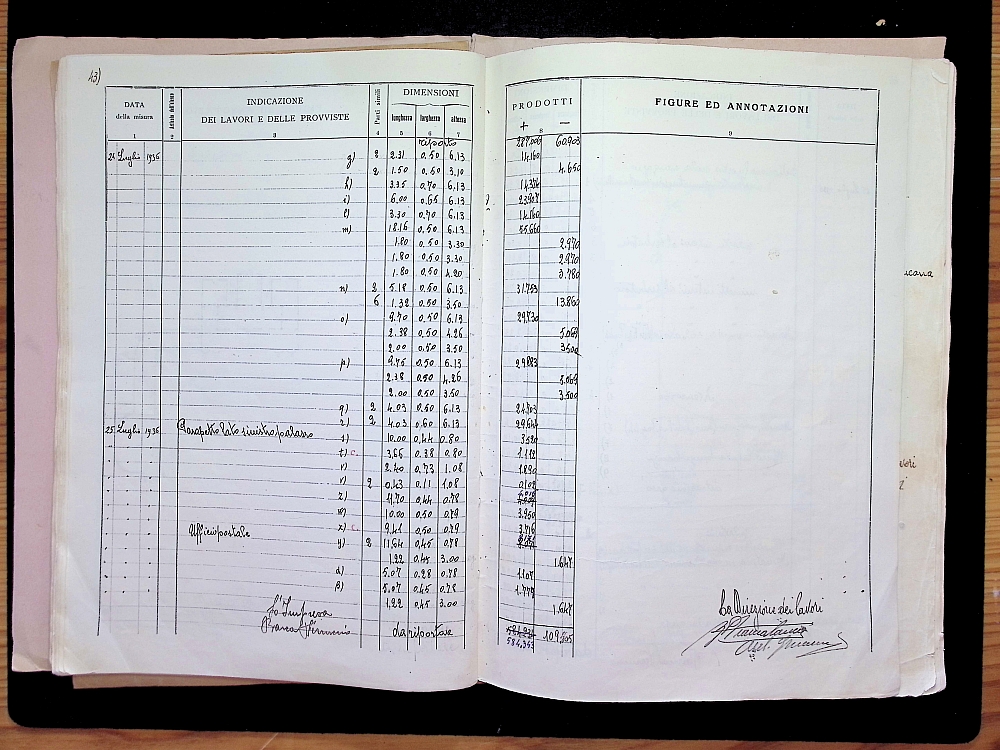 43)
DATA della misura
Articolo dell'elenco
INDICAZIONE DEI LAVORI E DELLE PROVVISTE
Parti simili
DIMENSIONI
lunghezza larghezza altezza
PRODOTTI
+ —
FIGURE ED ANNOTAZIONI
1 2 3 4 5 6 7 8 9
riporto 287.000 60.903
24 Luglio 1936 g) 2 2.31 0.50 6.13 14.160
2 1.50 0.50 3.10 4.650
h) 3.35 0.70 6.13 14.374
i) 6.00 0.65 6.13 23.907
l) 3.30 0.70 6.13 14.160
m) 18.16 0.50 6.13 55.660
1.80 0.50 3.30 2.970
1.80 0.50 3.30 2.970
1.80 0.50 4.20 3.780
n) 2 5.18 0.50 6.13 31.753
6 1.32 0.50 3.50 13.860
o) 9.70 0.50 6.13 29.730
2.38 0.50 4.26 5.069
2.00 0.50 3.50 3.500
p) 9.75 0.50 6.13 29.883
2.38 0.50 4.26 5.069
2.00 0.50 3.50 3.500
q) 2 4.03 0.50 6.13 24.703
r) 2 4.03 0.60 6.13 29.644
25 Luglio 1936 Parapetto lato sinistro palazzo s) 10.00 0.44 0.80 3.520
t) c. 3.66 0.38 0.80 1.112
v) 2.40 0.73 1.08 1.890
v) 2 0.43 0.11 1.08 0.102
z) 11.70 0.44 0.78
w) 10.00 0.50 0.79 3.950
Ufficio postale x) c 9.41 0.50 0.79 3.716
y) 2 11.64 0.45 0.78
1.22 0.45 3.00 1.647
α) 5.07 0.28 0.78 1.107
β) 5.07 0.45 0.78 1.779
1.22 0.45 3.00 1.647
L'Impresa
da riportare 109.565
584.353
La Direzione dei lavori
ucana